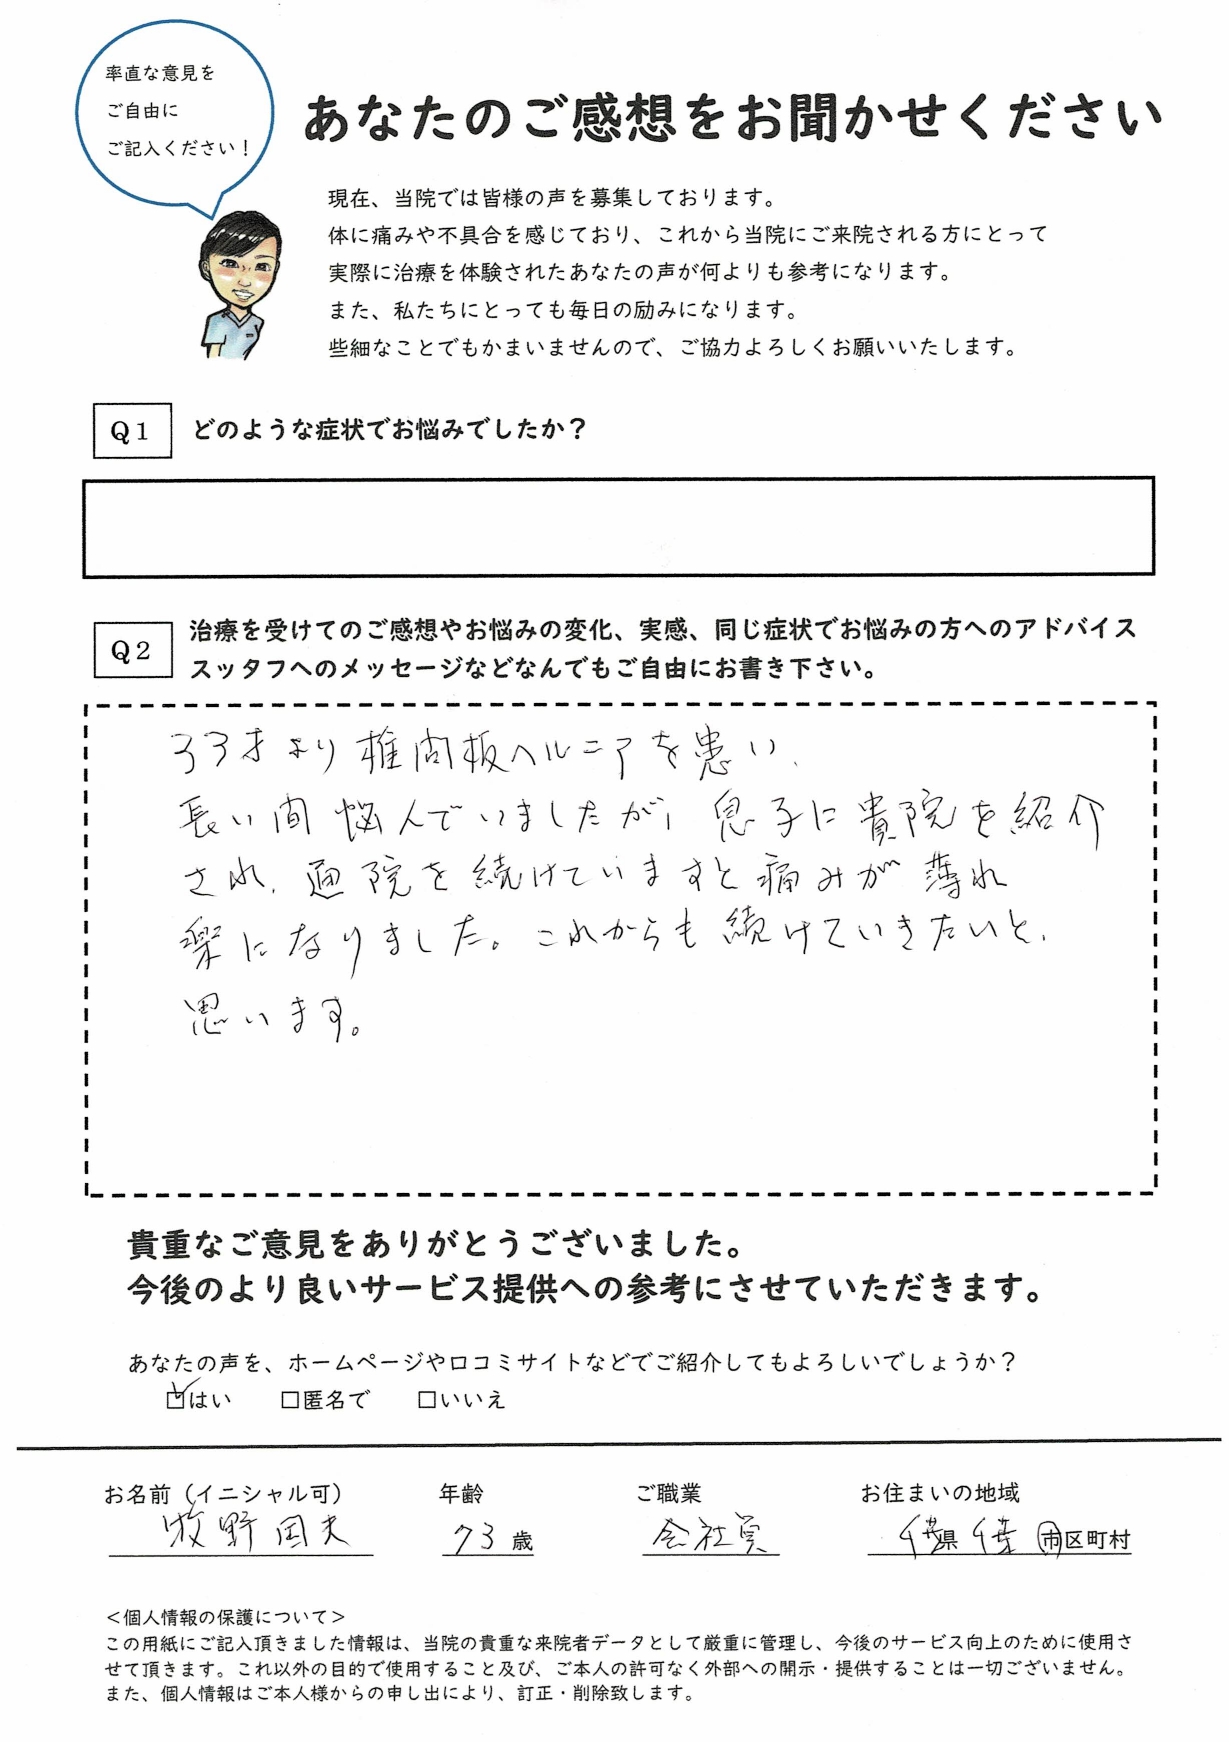 率直な意見を
ご自由に
ご記入ください！
あなたのご感想をお聞かせください
現在、当院では皆様の声を募集しております。
体に痛みや不具合を感じており、これから当院にご来院される方にとって
実際に治療を体験されたあなたの声が何よりも参考になります。
また、私たちにとっても毎日の励みになります。
些細なことでもかまいませんので、ご協力よろしくお願いいたします。
Q1 どのような症状でお悩みでしたか？
Q2 治療を受けてのご感想やお悩みの変化、実感、同じ症状でお悩みの方へのアドバイス
スッタフへのメッセージなどなんでもご自由にお書き下さい。
33才より椎間板ヘルニアを患い、
長い間悩んでいましたが、息子に貴院を紹介
され、通院を続けていますと痛みが薄れ
楽になりました。これからも続けていきたいと、
思います。
貴重なご意見をありがとうございました。
今後のより良いサービス提供への参考にさせていただきます。
あなたの声を、ホームページや口コミサイトなどでご紹介してもよろしいでしょうか？
☑はい □匿名で □いいえ
お名前（イニシャル可） 年齢 ご職業 お住まいの地域
牧野国夫 73歳 会社員 千葉県 千葉 市区町村
＜個人情報の保護について＞
この用紙にご記入頂きました情報は、当院の貴重な来院者データとして厳重に管理し、今後のサービス向上のために使用さ
せて頂きます。これ以外の目的で使用すること及び、ご本人の許可なく外部への開示・提供することは一切ございません。
また、個人情報はご本人様からの申し出により、訂正・削除致します。